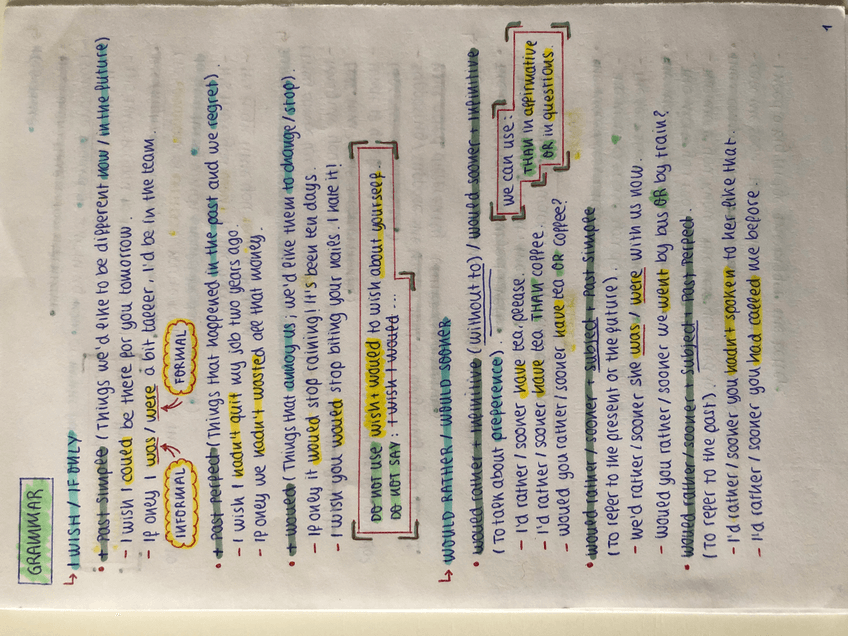 1
GRAMMAR
↳ I WISH / IF ONLY
• + past simple (Things we'd like to be different now / in the future)
- I wish I could be there for you tomorrow.
- If only I was / were a bit taller, I'd be in the team.
INFORMAL FORMAL
• + past perfect (Things that happened in the past and we regret).
- I wish I hadn't quit my job two years ago.
- If only we hadn't wasted all that money.
• + would (Things that annoy us; we'd like them to change / stop).
- If only it would stop raining! It's been ten days.
- I wish you would stop biting your nails. I hate it!
DO NOT USE wish + would to wish about yourself.
DO NOT SAY: I wish I would ...
↳ WOULD RATHER / WOULD SOONER
• would rather + infinitive (without to) / would sooner + infinitive
(To talk about preference).
- I'd rather / sooner have tea, please.
- I'd rather / sooner have tea THAN coffee.
- Would you rather / sooner have tea OR coffee?
we can use:
THAN in affirmative
OR in questions.
• would rather / sooner + subject + past simple
(To refer to the present or the future).
- we'd rather / sooner she was / were with us now.
- would you rather / sooner we went by bus OR by train?
• would rather / sooner + subject + past perfect.
(To refer to the past).
- I'd rather / sooner you hadn't spoken to her like that.
- I'd rather / sooner you had called me before.